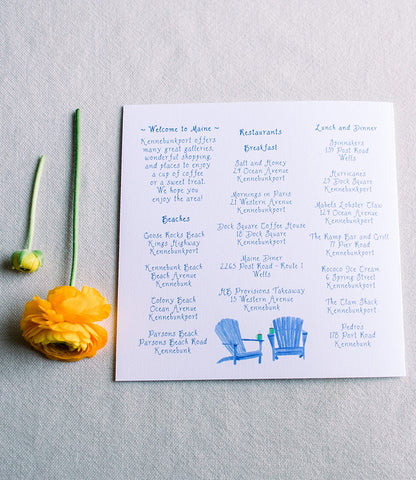 ~ Welcome to Maine ~
Kennebunkport offers
many great galleries,
wonderful shopping,
and places to enjoy
a cup of coffee
or a sweet treat.
We hope you
enjoy the area!
Beaches
Goose Rocks Beach
Kings Highway
Kennebunkport
Kennebunk Beach
Beach Avenue
Kennebunk
Colony Beach
Ocean Avenue
Kennebunkport
Parsons Beach
Parsons Beach Road
Kennebunk
Restaurants
Breakfast
Salt and Honey
24 Ocean Avenue
Kennebunkport
Mornings in Paris
21 Western Avenue
Kennebunkport
Dock Square Coffee House
18 Dock Square
Kennebunkport
Maine Diner
2265 Post Road - Route 1
Wells
HB Provisions Takeaway
15 Western Avenue
Kennebunk
Lunch and Dinner
Spinnakers
139 Post Road
Wells
Hurricanes
29 Dock Square
Kennebunkport
Mabels Lobster Claw
124 Ocean Avenue
Kennebunkport
The Ramp Bar and Grill
77 Pier Road
Kennebunkport
Rococo Ice Cream
6 Spring Street
Kennebunkport
The Clam Shack
Kennebunkport
Pedros
178 Port Road
Kennebunk